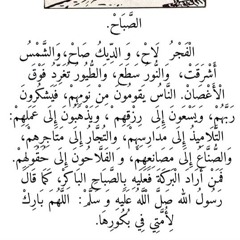 الصَّبَاحُ.
الْفَجْرُ لَاحْ، وَ الدِّيكُ صَاحْ، وَالشَّمْسُ
أَشْرَقَتْ، وَالنُّورُ سَطَعَ، وَالطُّيُورُ تُغَرِّدُ فَوْقَ
الْأَغْصَانْ. النَّاسُ يَقُومُونَ مِنْ نَوْمِهِمْ، فَيَشْكُرُونَ
رَبَّهُمْ، وَيَسْعَونَ إِلَى رِزْقِهِمْ، وَيَذْهَبُونَ إِلَى عَمَلِهِمْ:
التَّلَامِيذُ إِلَى مَدَارِسِهِمْ، وَالتُّجَّارُ إِلَى مَتَاجِرِهِمْ،
وَالصُّنَّاعُ إِلَى مَصَانِعِهِمْ، وَ الْفَلَّاحُونَ إِلَى حُقُولِهِمْ.
فَمَنْ أَرَادَ الْبَرَكَةَ فَعَلَيْهِ بِالصَّبَاحِ الْبَاكِرْ، كَمَا قَالَ
رَسُولُ اللَّه صَلَّ اللَّهُ عَلَيهِ وَ سَلَّمَ: اللَّهُمَّ بَارِكْ
لِأُمَّتِي فِي بُكُورِهَا.